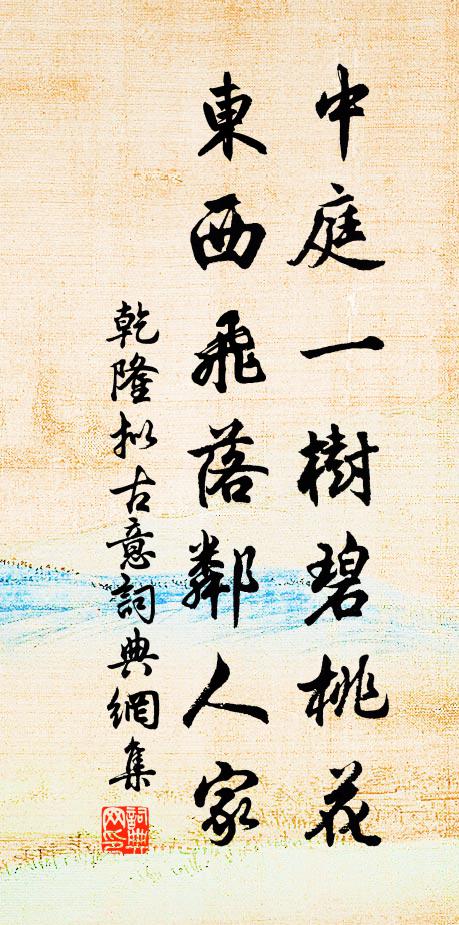 中庭一樹碧桃花
東西飛落鄰人家
乾隆拟古意詞典網集
詞典
网印